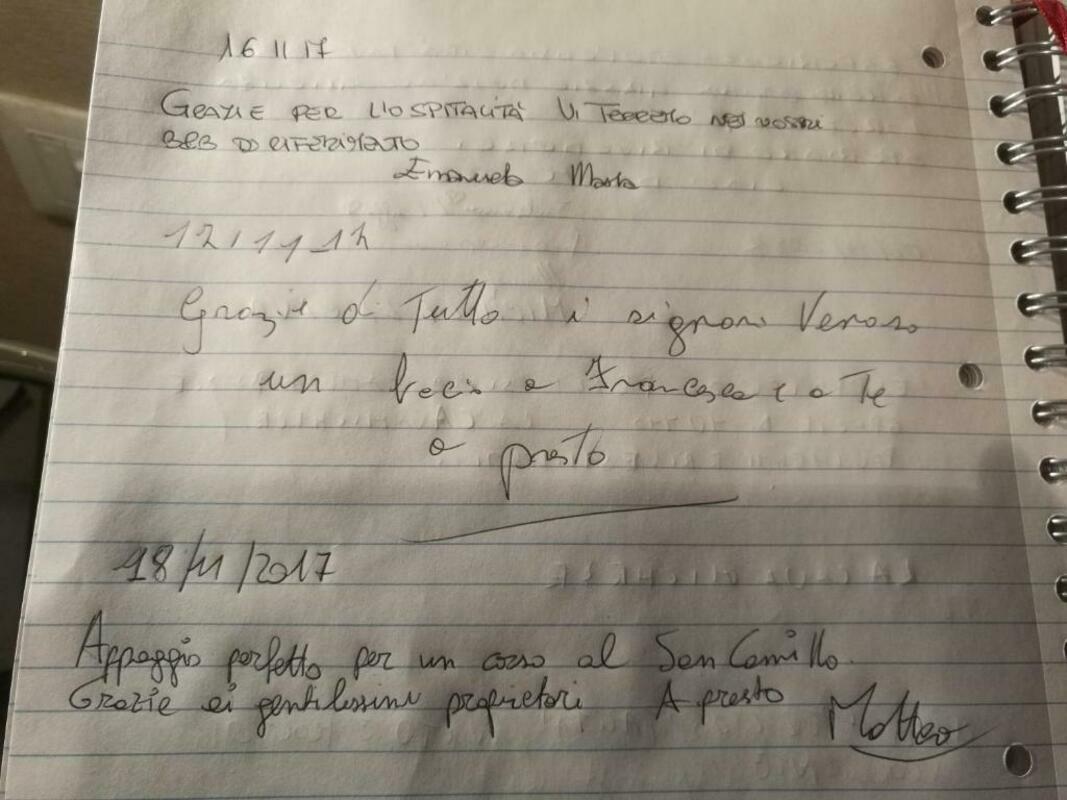 16 11 17
GRAZIE PER L'OSPITALITÀ VI TERREMO NEI VOSTRI
B&B DI RIFERIMENTO
Emanuela Marta
Grazie di Tutto i signori
un bacio a Francesca e a Te
a presto
18/11/2017
Appoggio perfetto per un corso al San Camillo.
Grazie ai gentilissimi proprietari A presto Matteo